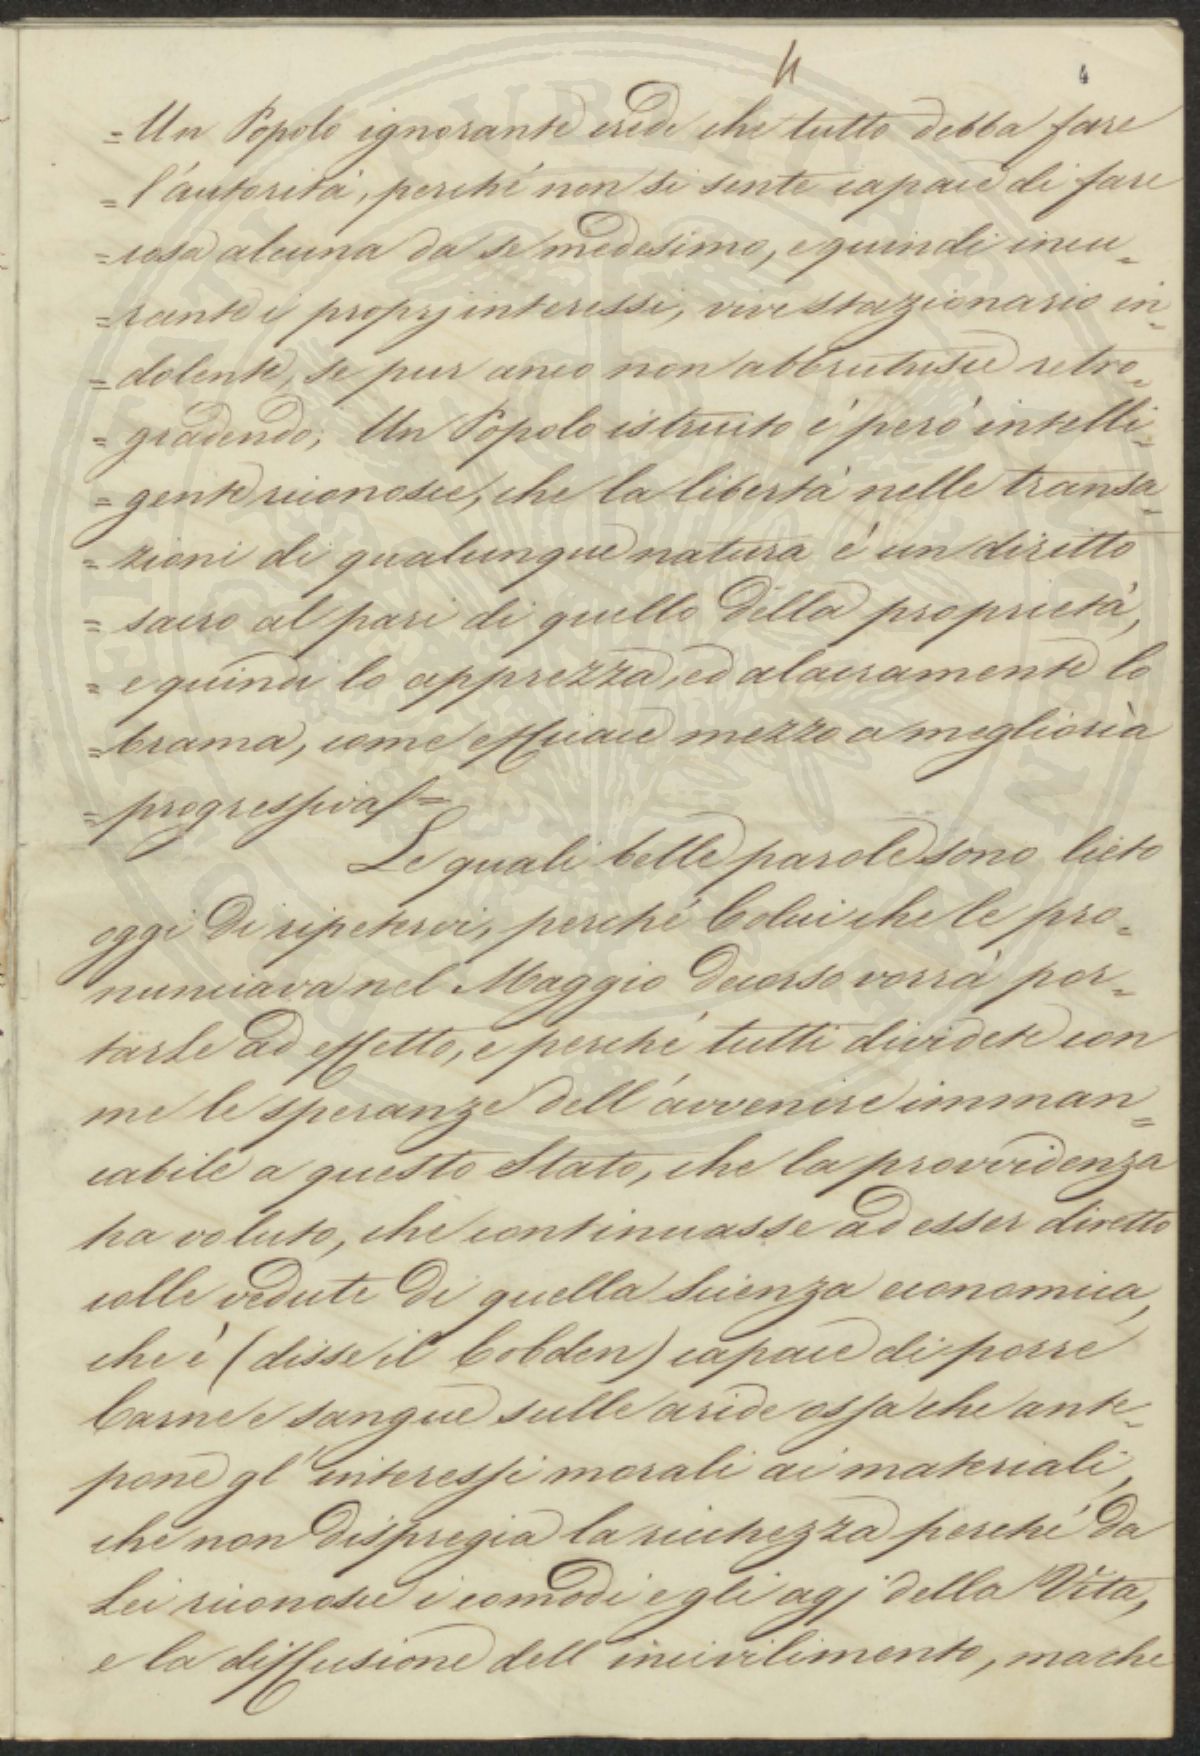 4
= Un Popolo ignorante crede che tutto debba fare
= l'autorità, perchè non si sente capace di fare
= cosa alcuna da se medesimo, e quindi incu-
= rante i proprj interessi, vive stazionario in-
= dolente, se pur anco non abbrutisce retro-
= gradendo; Un Popolo istruito è però intelli-
= gente riconosce, che la libertà nelle transa-
= zioni di qualunque natura è un diritto
= sacro al pari di quello della proprietà,
= e quindi lo apprezza, ed alacramente lo
= brama, come efficace mezzo a miglioria
= progressiva =
Le quali belle parole sono lieto
oggi di ripetervi, perchè Colui che le pro-
nunciava nel Maggio decorso vorrà por-
tarle ad effetto, e perchè tutti dividete con
me le speranze dell'avvenire imman-
cabile a questo Stato, che la provvidenza
ha voluto, che continuasse ad esser diretto
colle vedute di quella Scienza economica,
che è (disse il Cobden) capace di porre
Carne e sangue sulle aride ossa che ante-
pone gl'interessi morali ai materiali,
che non dispregia la ricchezza perchè da
Lei riconosce i comodi e gli agj della Vita,
e la diffusione dell'incivilimento, ma che